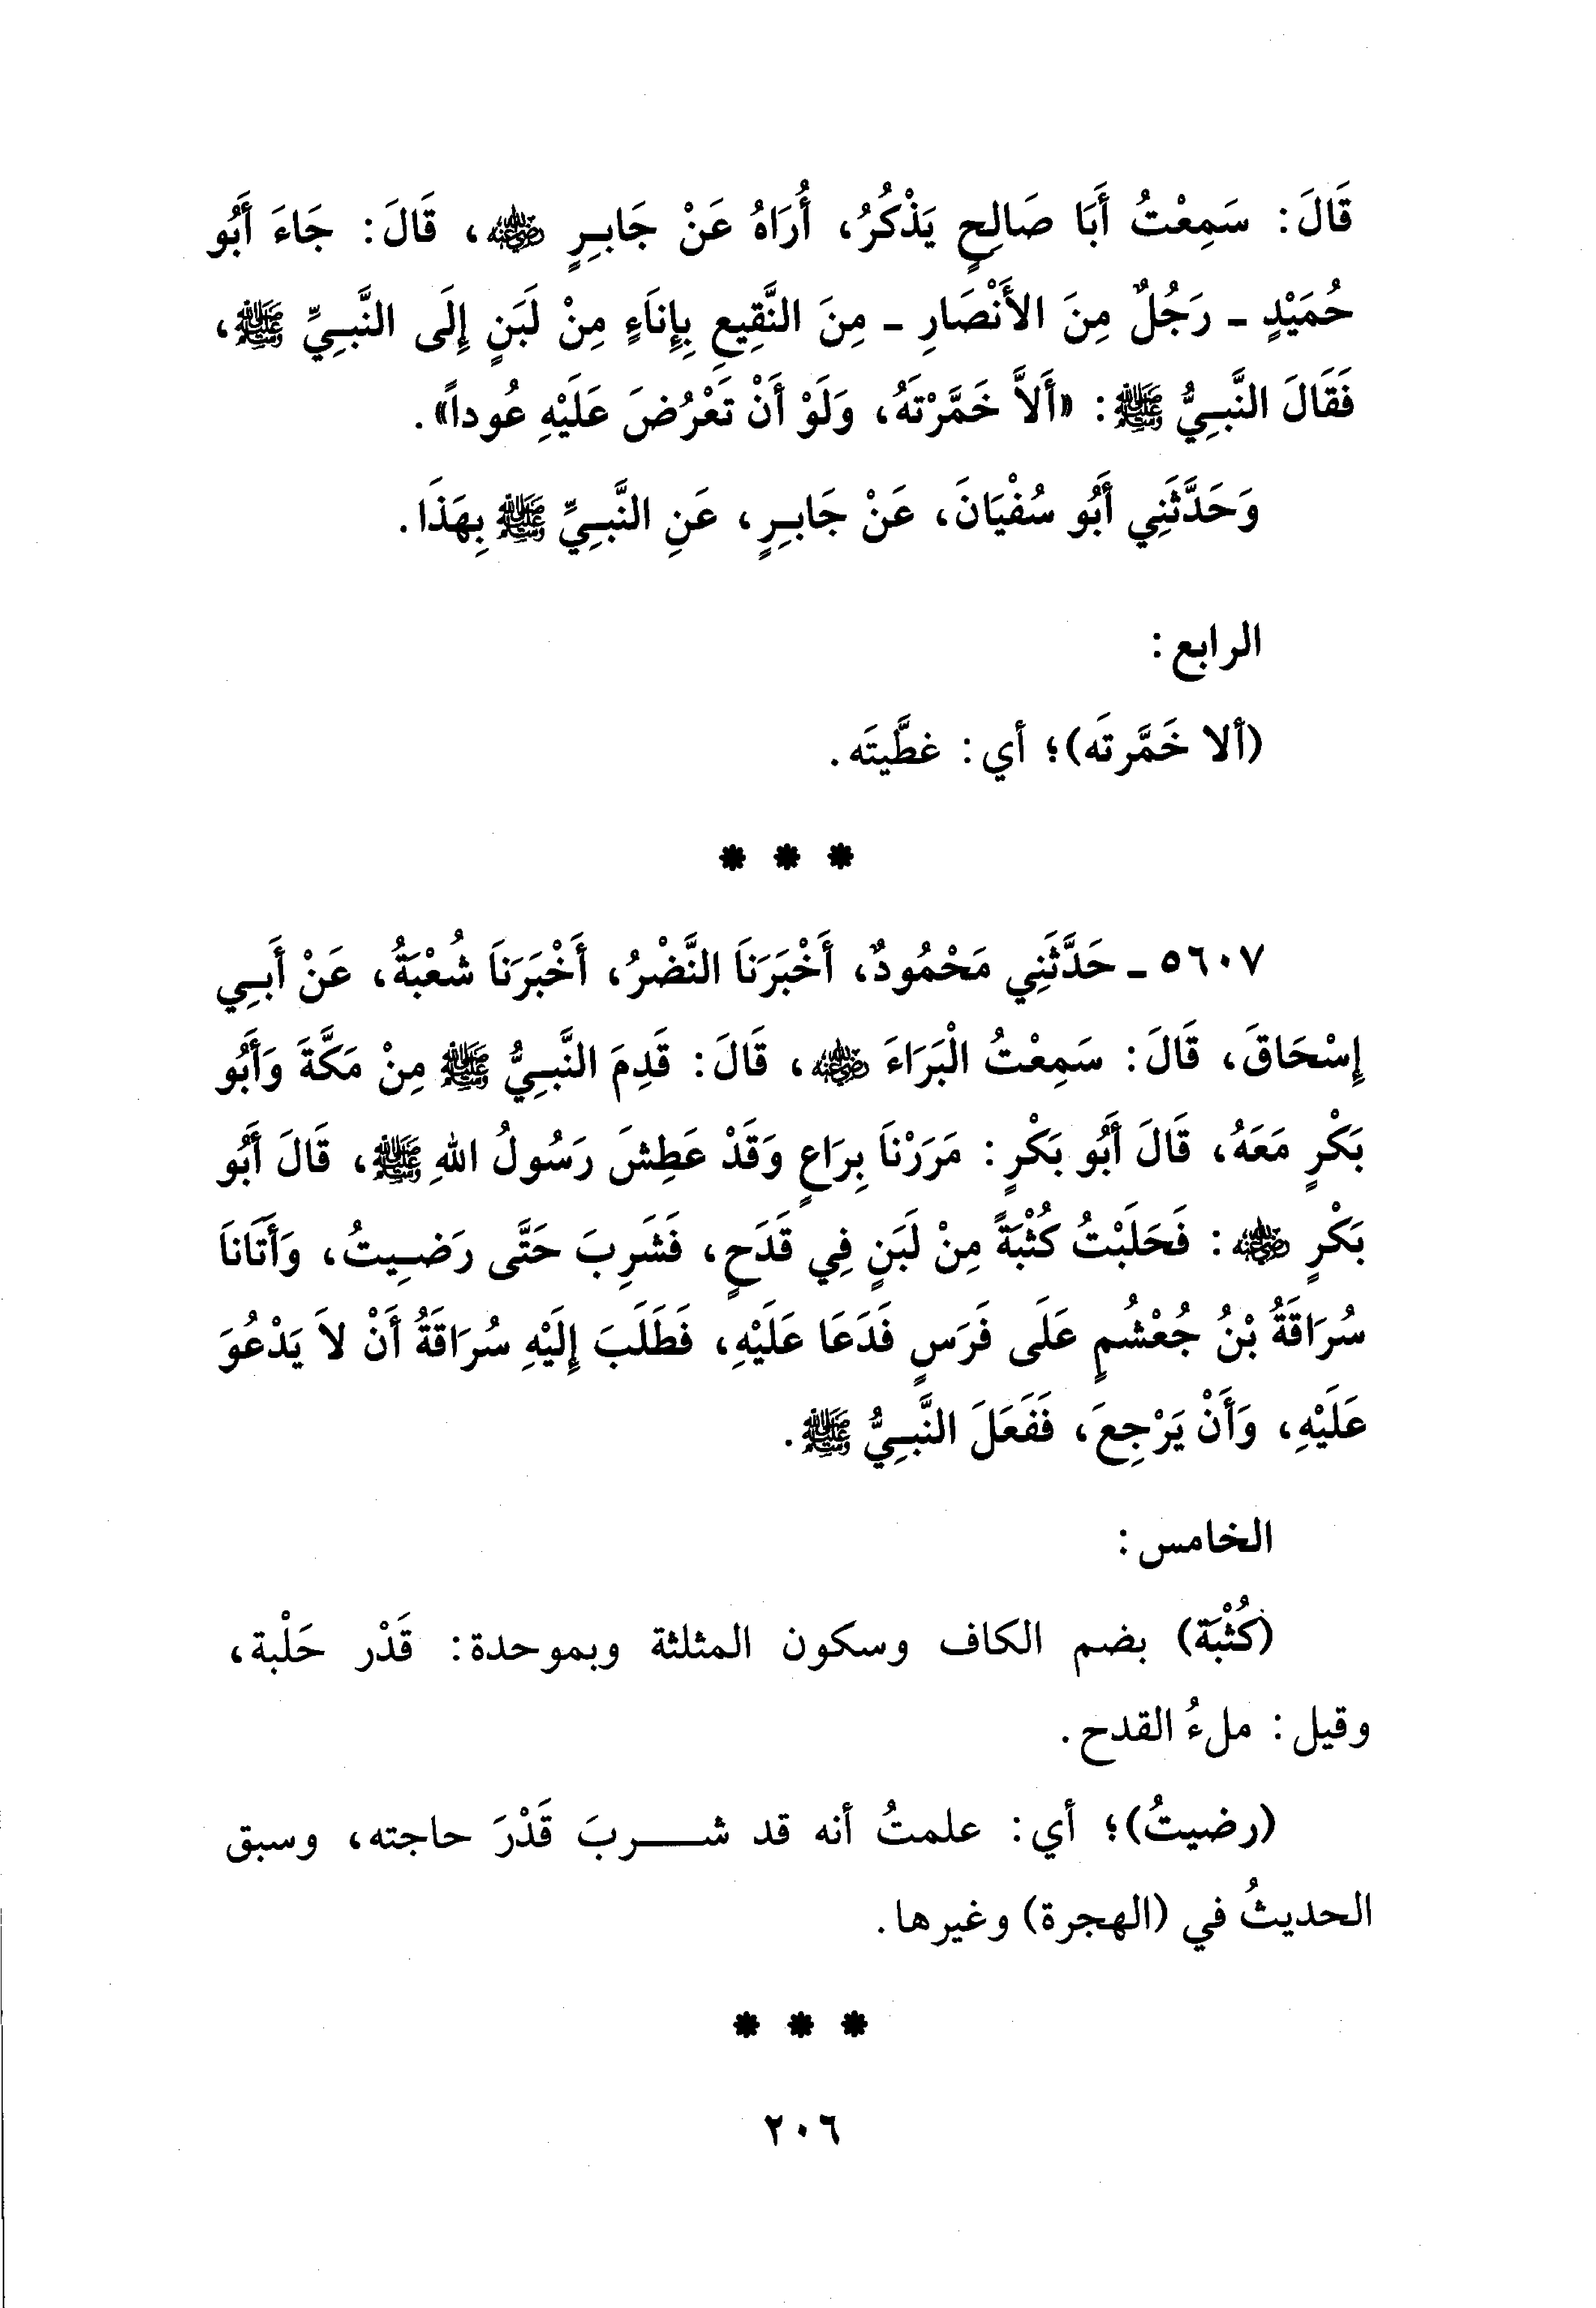 قَالَ: سَمِعْتُ أَبَا صَالِحٍ يَذْكُرُ، أُرَاهُ عَنْ جَابِرٍ رضي الله عنه، قَالَ: جَاءَ أَبُو
حُمَيْدٍ ـ رَجُلٌ مِنَ الأَنْصَارِ ـ مِنَ النَّقِيعِ بِإِنَاءٍ مِنْ لَبَنٍ إِلَى النَّبِيِّ ﷺ،
فَقَالَ النَّبِيُّ ﷺ: «أَلاَّ خَمَّرْتَهُ، وَلَوْ أَنْ تَعْرُضَ عَلَيْهِ عُوداً».
وَحَدَّثَنِي أَبُو سُفْيَانَ، عَنْ جَابِرٍ، عَنِ النَّبِيِّ ﷺ بِهَذَا.
الرابع:
(ألا خَمَّرتَه)؛ أي: غطَّيتَه.
* * *
٥٦٠٧ ـ حَدَّثَنِي مَحْمُودٌ، أَخْبَرَنَا النَّضْرُ، أَخْبَرَنَا شُعْبَةُ، عَنْ أَبِي
إِسْحَاقَ، قَالَ: سَمِعْتُ الْبَرَاءَ رضي الله عنه، قَالَ: قَدِمَ النَّبِيُّ ﷺ مِنْ مَكَّةَ وَأَبُو
بَكْرٍ مَعَهُ، قَالَ أَبُو بَكْرٍ: مَرَرْنَا بِرَاعٍ وَقَدْ عَطِشَ رَسُولُ اللهِ ﷺ، قَالَ أَبُو
بَكْرٍ رضي الله عنه: فَحَلَبْتُ كُثْبَةً مِنْ لَبَنٍ فِي قَدَحٍ، فَشَرِبَ حَتَّى رَضِيتُ، وَأَتَانَا
سُرَاقَةُ بْنُ جُعْشُمٍ عَلَى فَرَسٍ فَدَعَا عَلَيْهِ، فَطَلَبَ إِلَيْهِ سُرَاقَةُ أَنْ لاَ يَدْعُوَ
عَلَيْهِ، وَأَنْ يَرْجِعَ، فَفَعَلَ النَّبِيُّ ﷺ.
الخامس:
(كُثْبَة) بضم الكاف وسكون المثلثة وبموحدة: قَدْر حَلْبة،
وقيل: ملءُ القدح.
(رضيتُ)؛ أي: علمتُ أنه قد شـــربَ قَدْرَ حاجته، وسبق
الحديثُ في (الهجرة) وغيرها.
* * *
٢٠٦